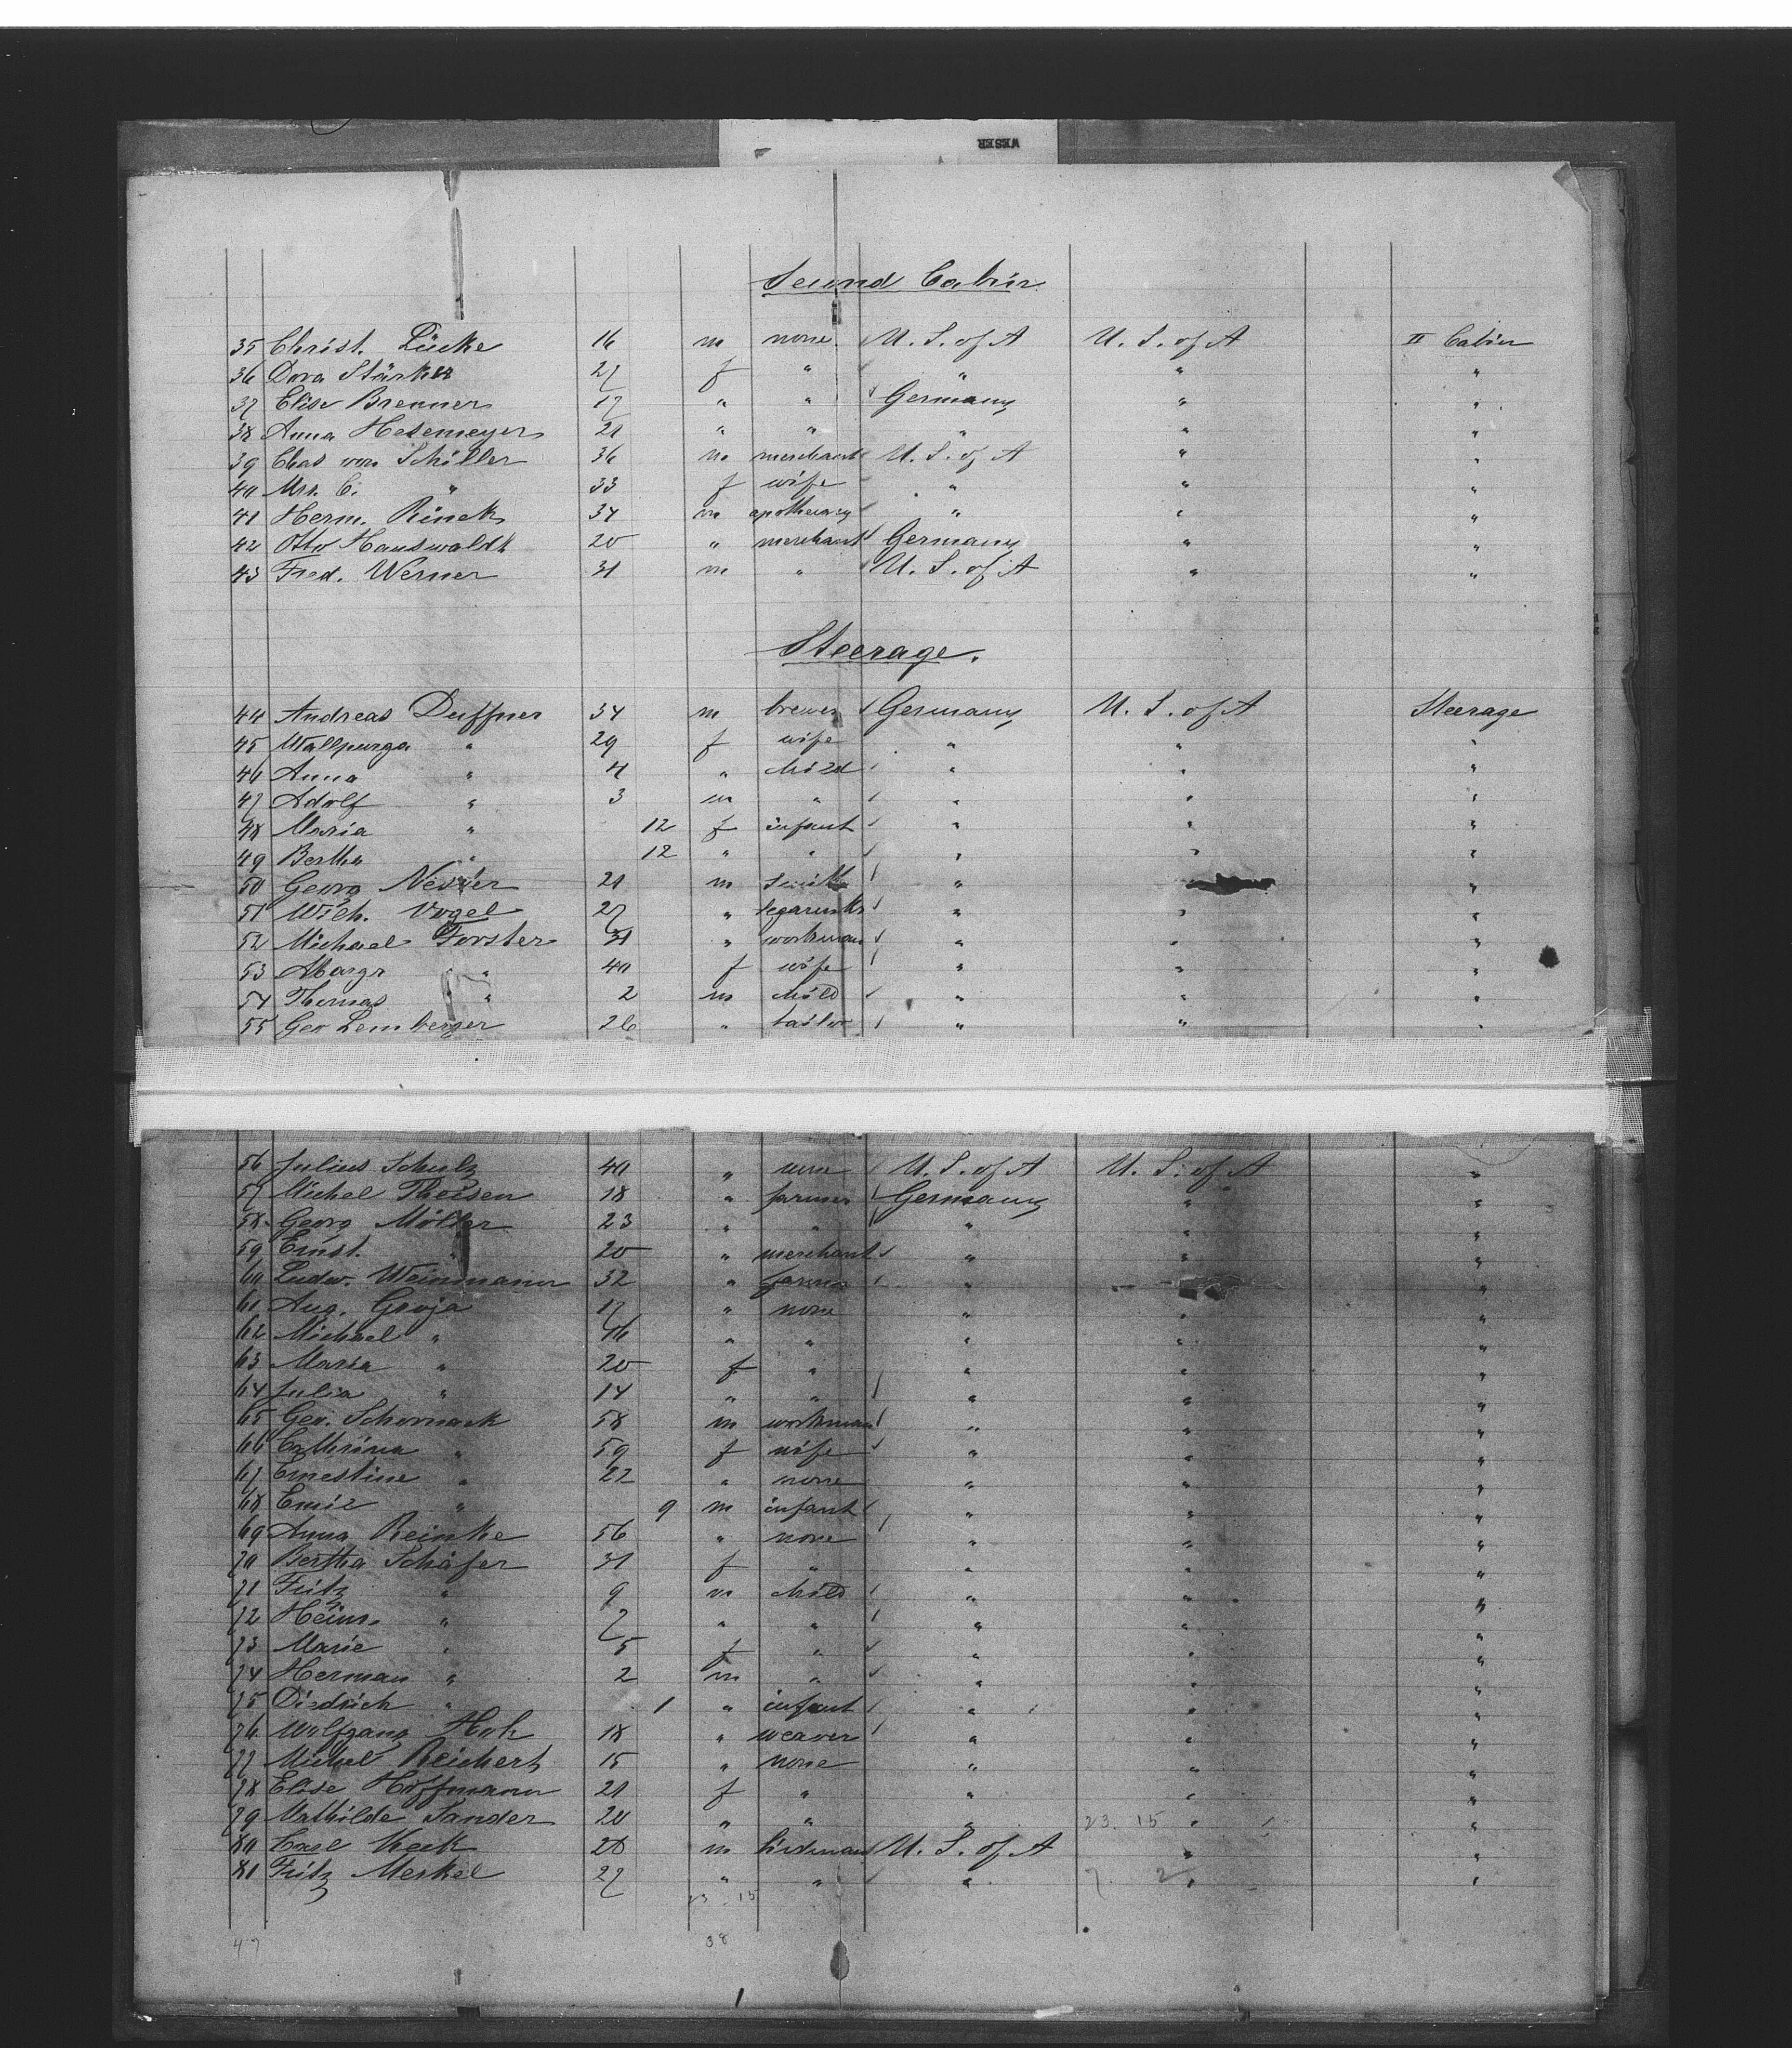 WESER
Second Cabin
35 Christ. Lücke 16 m none U. S. of A U. S. of A II Cabin
36 Dora Stärker 27 f " " " "
37 Elise Brenner 17 " " Germany " "
38 Anna Hesemeyer 21 " " " " "
39 Chas von Schiller 36 m merchant U. S. of A " "
40 Mrs. C. " 33 f wife " " "
41 Herm. Rinck 34 m apothecary " " "
42 Otto Hauswaldt 20 " merchant Germany " "
43 Fred. Werner 31 m " U. S. of A " "
Steerage.
44 Andreas Duffner 34 m brewer Germany U. S. of A Steerage
45 Wallpurga " 29 f wife " " "
46 Anna " 4 " child " " "
47 Adolf " 3 m " " " "
48 Maria " 12 f infant " " "
49 Bertha " 12 " " " " "
50 Georg 21 m smith " " "
51 Wilh. Vogel 27 " segarmkr " " "
52 Michael Forster 31 " workman " " "
53 Margr " 40 f wife " " "
54 Thomas " 2 m child " " "
55 Geo Lemberger 26 " tailor " " "
56 Julius Schulz 40 " none U. S. of A U. S. of A "
57 Michel Theisen 18 " farmer Germany " "
58 Georg Möller 23 " " " " "
59 Ernst. " 20 " merchant " " "
60 Ludw. Weinmann 32 " farmer " " "
61 Aug. Groja 17 " none " " "
62 Michael " 16 " " " " "
63 Maria " 20 f " " " "
64 Julia " 14 " " " " "
65 Geo. Schornack 58 m workman " " "
66 Catharina " 59 f wife " " "
67 Ernestine " 22 " none " " "
68 Emil " 9 m infant " " "
69 Anna Reinke 56 " none " " "
70 Bertha Schäfer 31 f " " " "
71 Fritz " 9 m child " " "
72 Heinr. " 7 " " " " "
73 Marie " 5 f " " " "
74 Herman " 2 m " " " "
75 Diedrich " 1 " infant " " "
76 Wolfgang Hoh 18 " weaver " " "
77 Michel Reichert 15 " none " " "
78 Elise Hoffmann 21 f " " " "
79 Mathilde Sander 20 " " " 23 15 " "
80 Carl Keck 28 m U. S. of A " "
81 Fritz Merkel 27 " " " 7. 2 " "
23 15
47 38
1